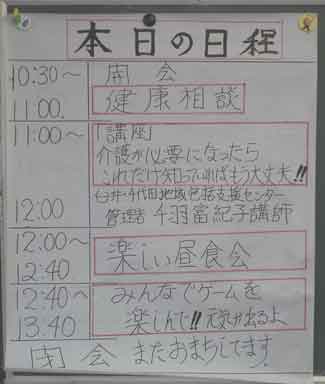 本日の日程
10:30～ 開会
11:00. 健康相談
11:00～ 「講座」
介護が必要になったら
これだけ知っていればもう大丈夫!!
臼井・千代田地域包括支援センター
12:00 管理者 千羽富紀子講師
12:00～
12:40 楽しい昼食会
12:40～ みんなでゲームを
13:40 楽しんで!! 元気が出るよ
閉会 またおまちしてます